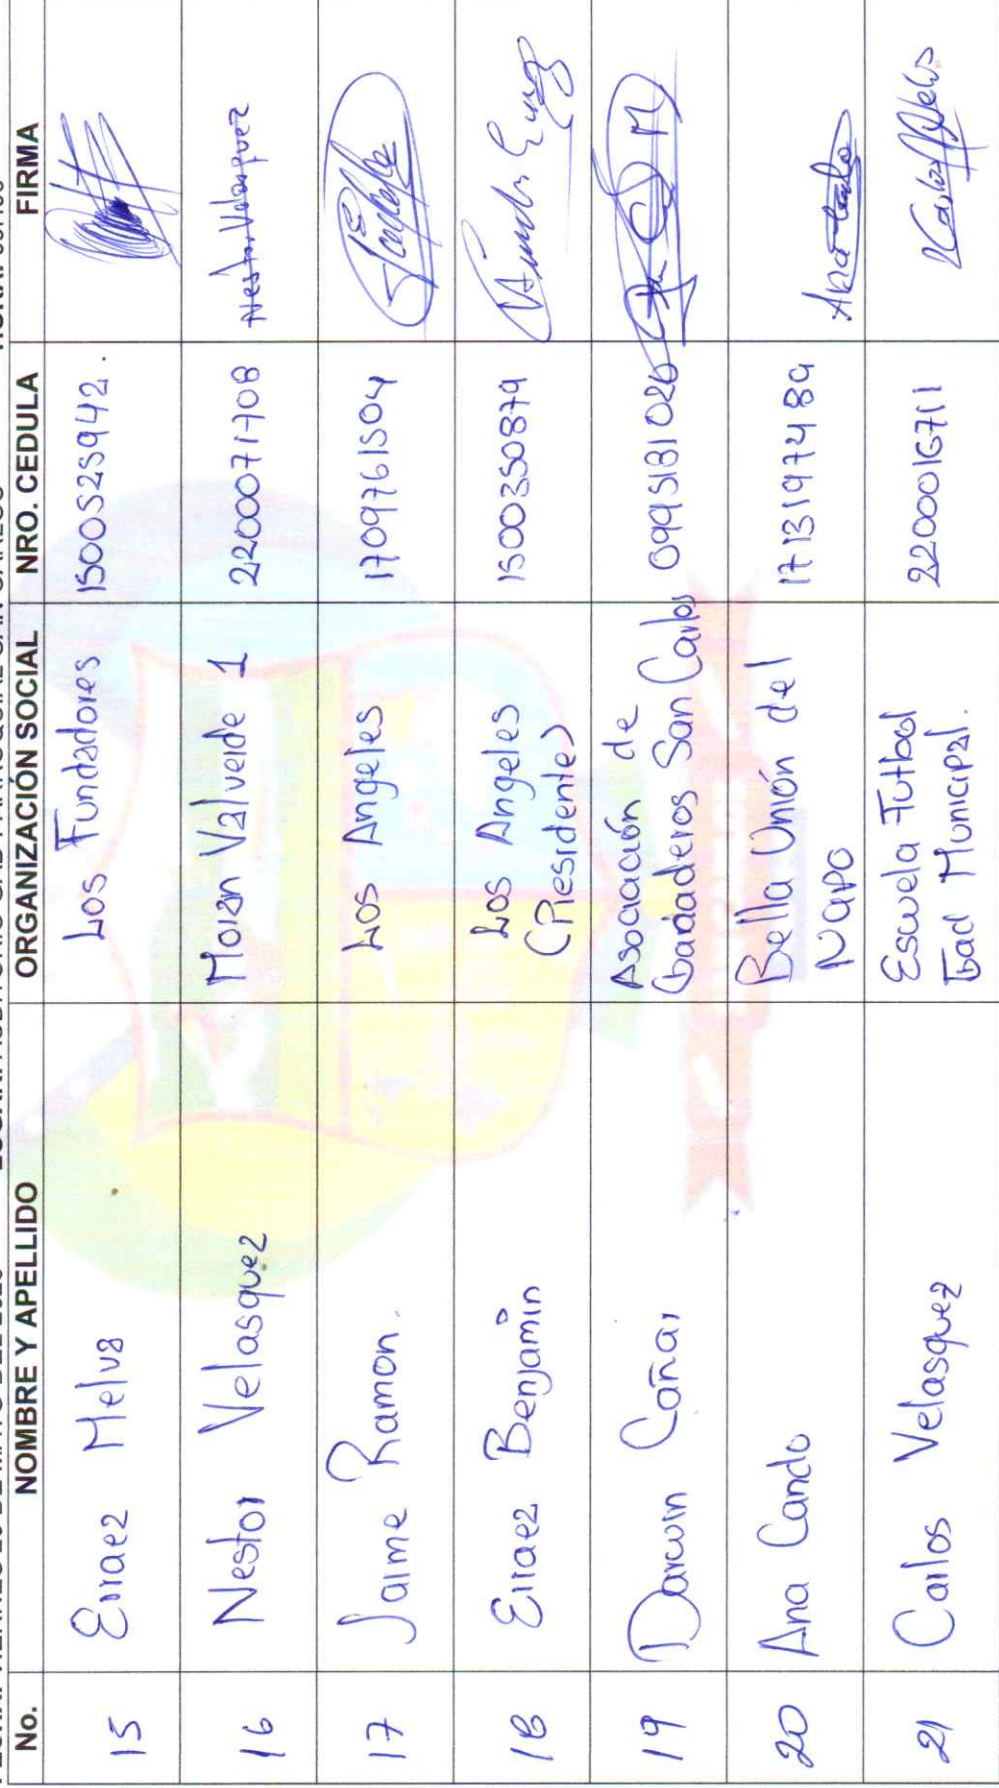 No. NOMBRE Y APELLIDO ORGANIZACIÓN SOCIAL NRO. CEDULA FIRMA
15 Erraez Melva Los Fundadores 1500525942.
16 Nestor Velasquez Moran Valverde 1 2200071708 Nestor Velasquez
17 Jaime Ramon. Los Angeles 1709761504
18 Erraez Benjamin Los Angeles 1500350879
(Presidente)
19 Darwin Cañar Asociación de
Ganaderos San Carlos 0995181026
20 Ana Cando Bella Unión del 1713197489 Ana Cando
Napo
21 Carlos Velasquez Escuela Futbol 2200016711
Gad Municipal.